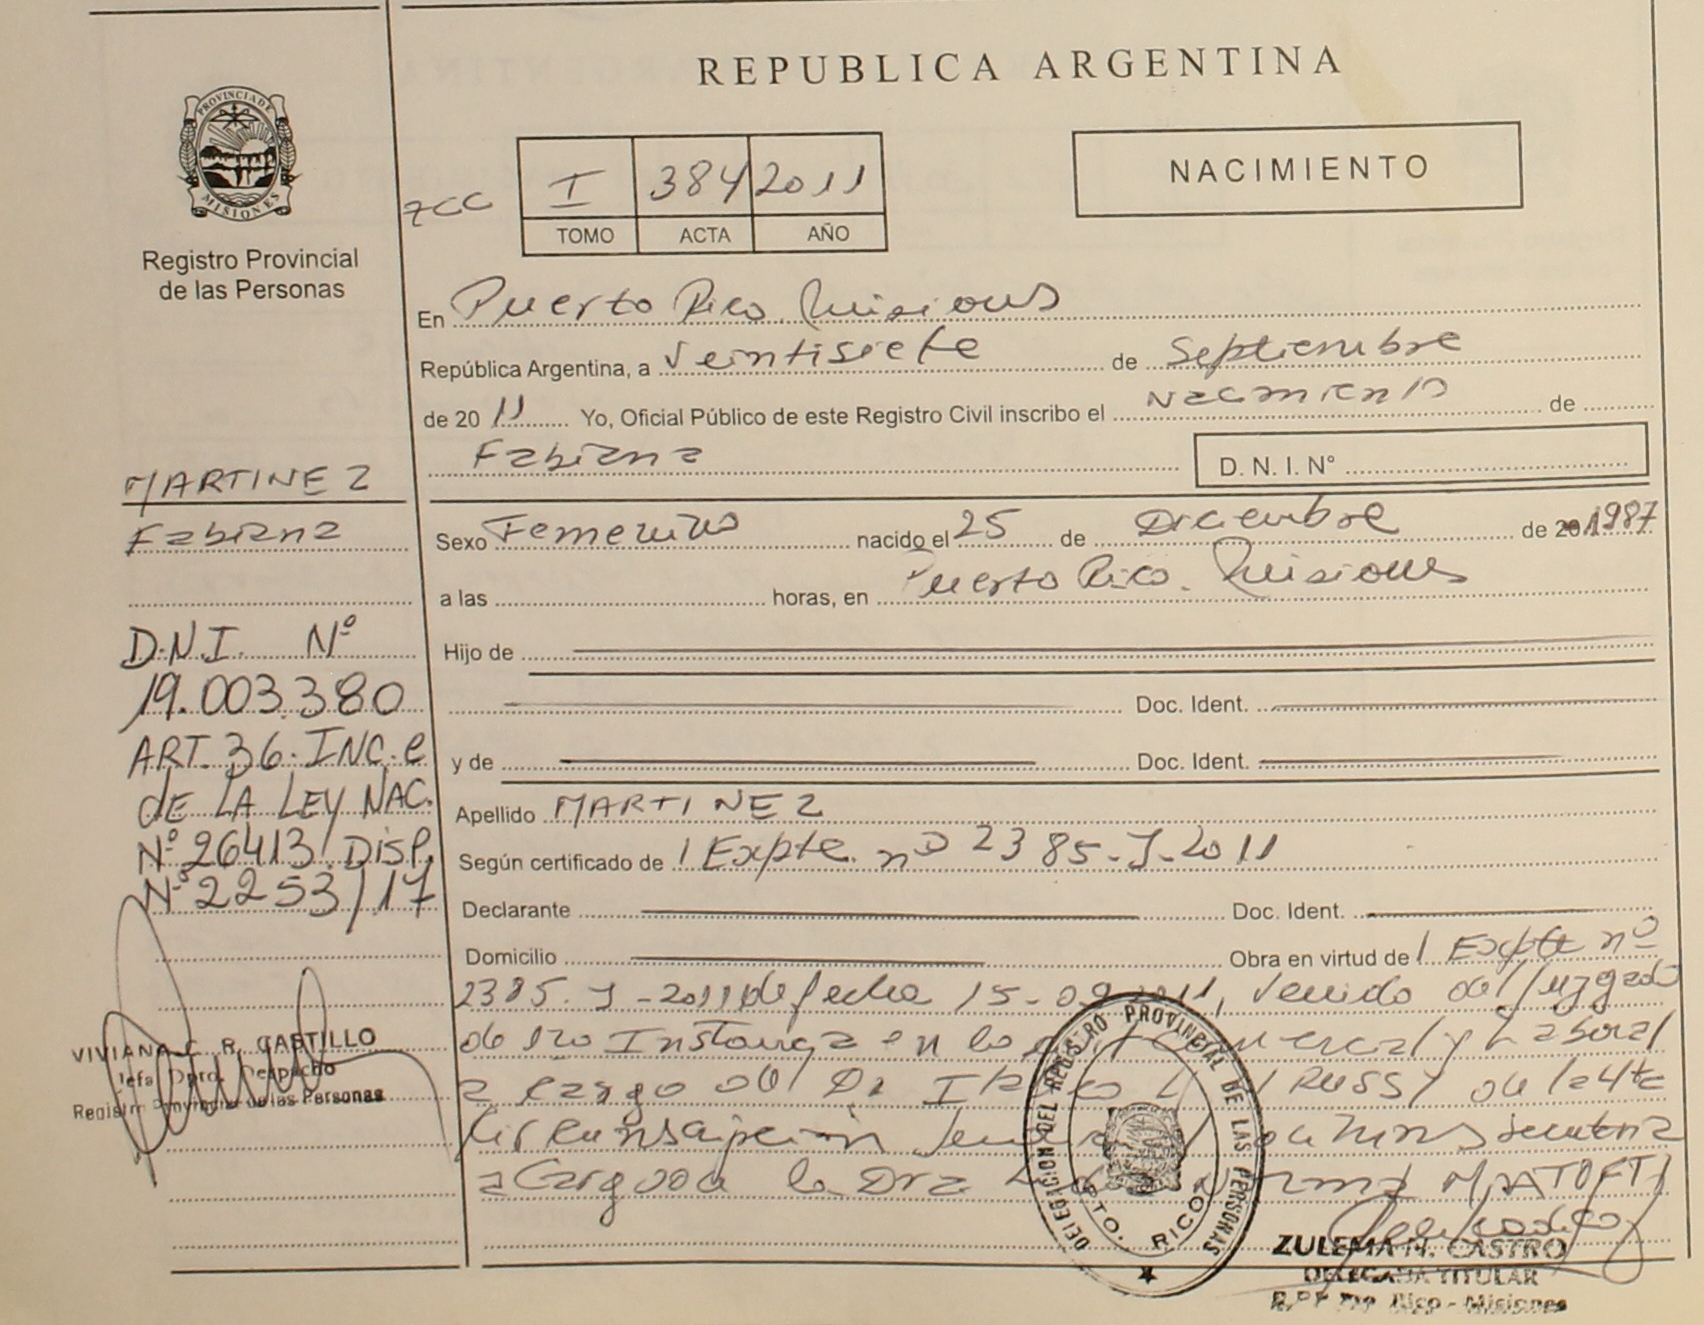 REPUBLICA ARGENTINA
PROVINCIA DE
MISIONES
Registro Provincial
de las Personas
zcc
I 384 2011
TOMO ACTA AÑO
NACIMIENTO
En Puerto Rico. Misiones
República Argentina, a veintisiete de Septiembre
de 2011 Yo, Oficial Público de este Registro Civil inscribo el Nacimiento de
Fabiana D. N. I. N°
MARTINEZ
Fabiana
D.N.I. Nº
19.003.380
ART. 36. INC. e
de LA LEY NAC.
Nº 26413/ DISP.
Nº 2253/17
VIVIANA C. R. CASTILLO
Jefa Dpto. Despacho
Registro Provincial de las Personas
Sexo Femenino nacido el 25 de Diciembre de 20 1987
a las horas, en Puerto Rico. Misiones
Hijo de
Doc. Ident.
y de Doc. Ident.
Apellido MARTINEZ
Según certificado de / Expte. nº 2385-J-2011
Declarante Doc. Ident.
Domicilio Obra en virtud de / Expte nº
2385-J-2011 de fecha 15-09-2011, venido del Juzgado
de 1ro Instanza en lo y Laboral
a cargo del Dr de la 4ta
Circunscripción
a cargo de la Dra MATOFTI
DELEGACION DEL REGISTRO PROVINCIAL DE LAS PERSONAS
PTO. RICO
ZULEMA N. CASTRO
DELEGADA TITULAR
R.P.P. Pto. Rico - Misiones